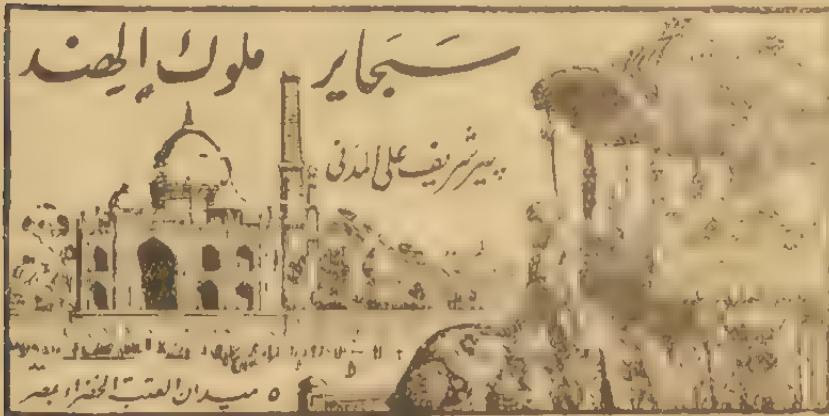 سَبَجَاير ملوك الهند
پير شريف على المدنى
٥ ميدان العتبة الخضراء بمصر